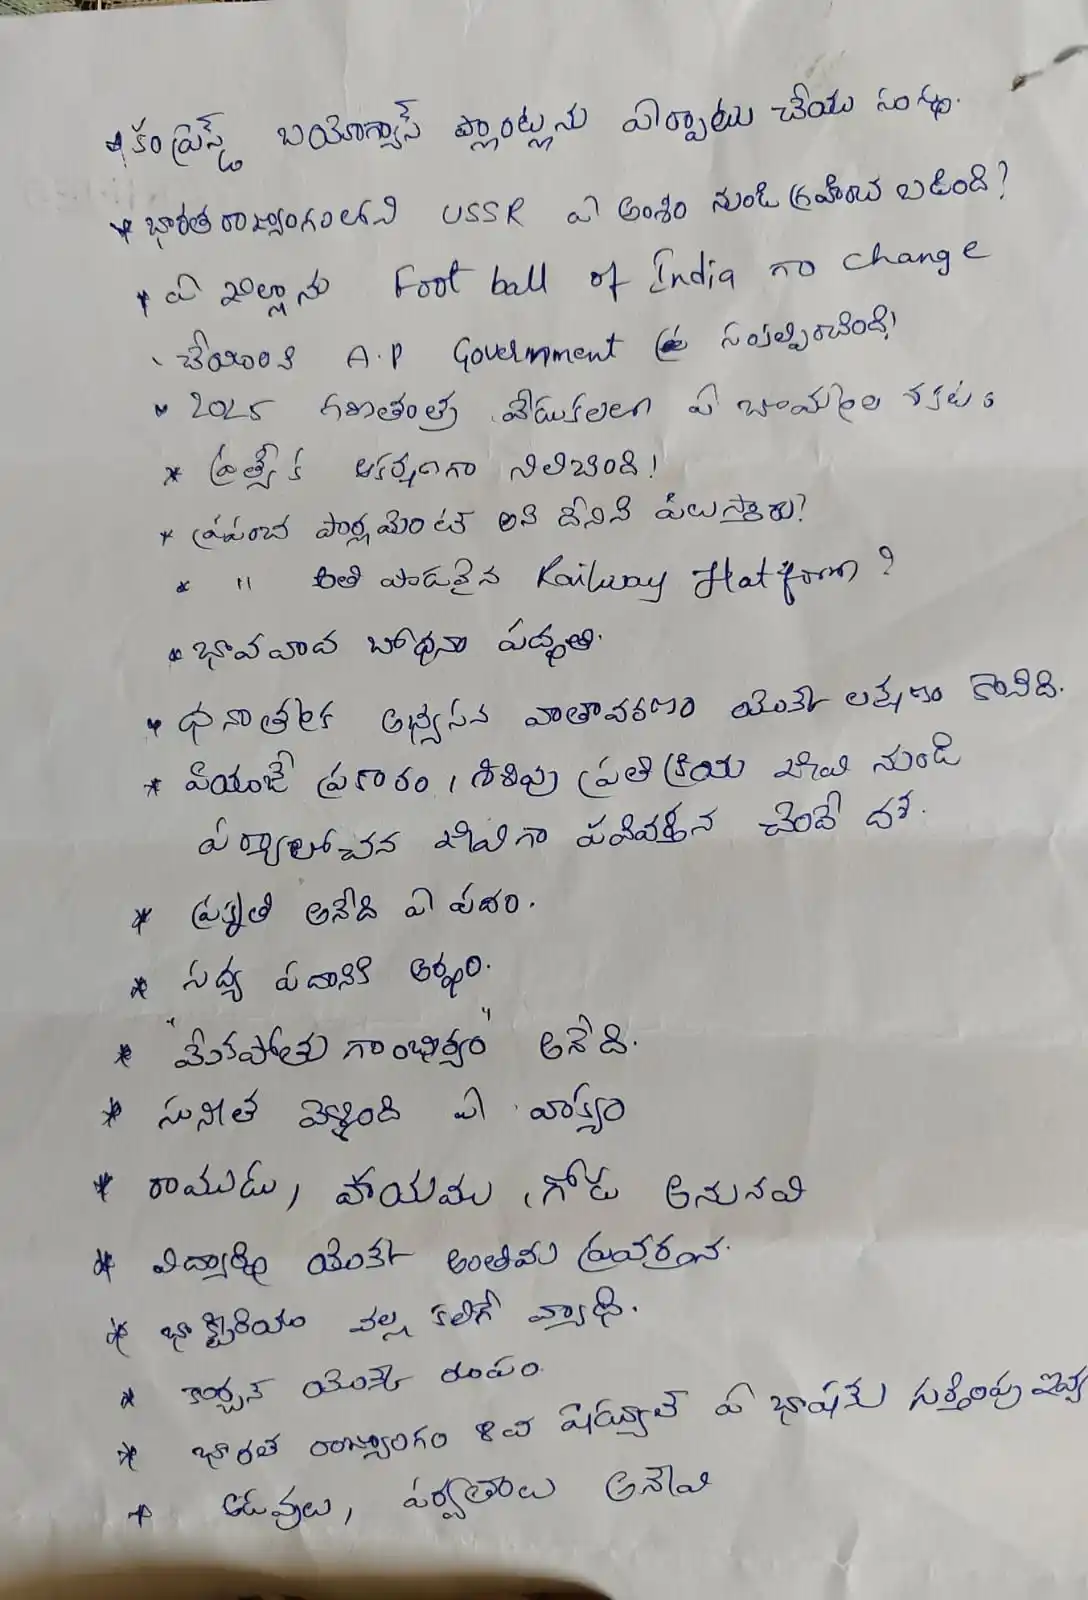 * కంప్రెస్డ్ బయోగ్యాస్ ప్లాంట్లను ఏర్పాటు చేయు సంస్థ.
* భారత రాజ్యాంగంలోని USSR ఏ అంశం నుండి గ్రహించ బడింది?
* ఏ జిల్లాను Foot ball of India గా change
చేయుటకి A.P Government సంకల్పించింది?
* 2025 గణతంత్ర వేడుకలలో ఏ బొమ్మల శకటం
* ప్రత్యేక ఆకర్షణగా నిలిచింది!
* ప్రపంచ పార్లమెంట్ అని దేనిని పిలుస్తారు?
* " అతి పొడవైన Railway Platform?
* భావవాద బోధనా పద్ధతి.
* ధనాత్మక అభ్యసన వాతావరణం యొక్క లక్షణం కానిది.
* పియాజే ప్రకారం, శిశువు ప్రతిక్రియ జీవి నుండి
పర్యాలోచన జీవిగా పరివర్తన చెందే దశ.
* ప్రకృతి అనేది ఏ పదం.
* సద్య పదానికి అర్థం.
* "మేకపోతు గాంభీర్యం" అనేది.
* సునీత వెళ్ళింది ఏ వాక్యం
* రాముడు, పాయము, గోడ అనునవి
* విద్యార్థి యొక్క అంతిమ ప్రవర్తన.
* బాక్టీరియం వల్ల కలిగే వ్యాధి.
* కార్బన్ యొక్క రూపం.
* భారత రాజ్యాంగం 8వ షెడ్యూల్ ఏ భాషకు గుర్తింపు
* అడవులు, పర్వతాలు అనేవి